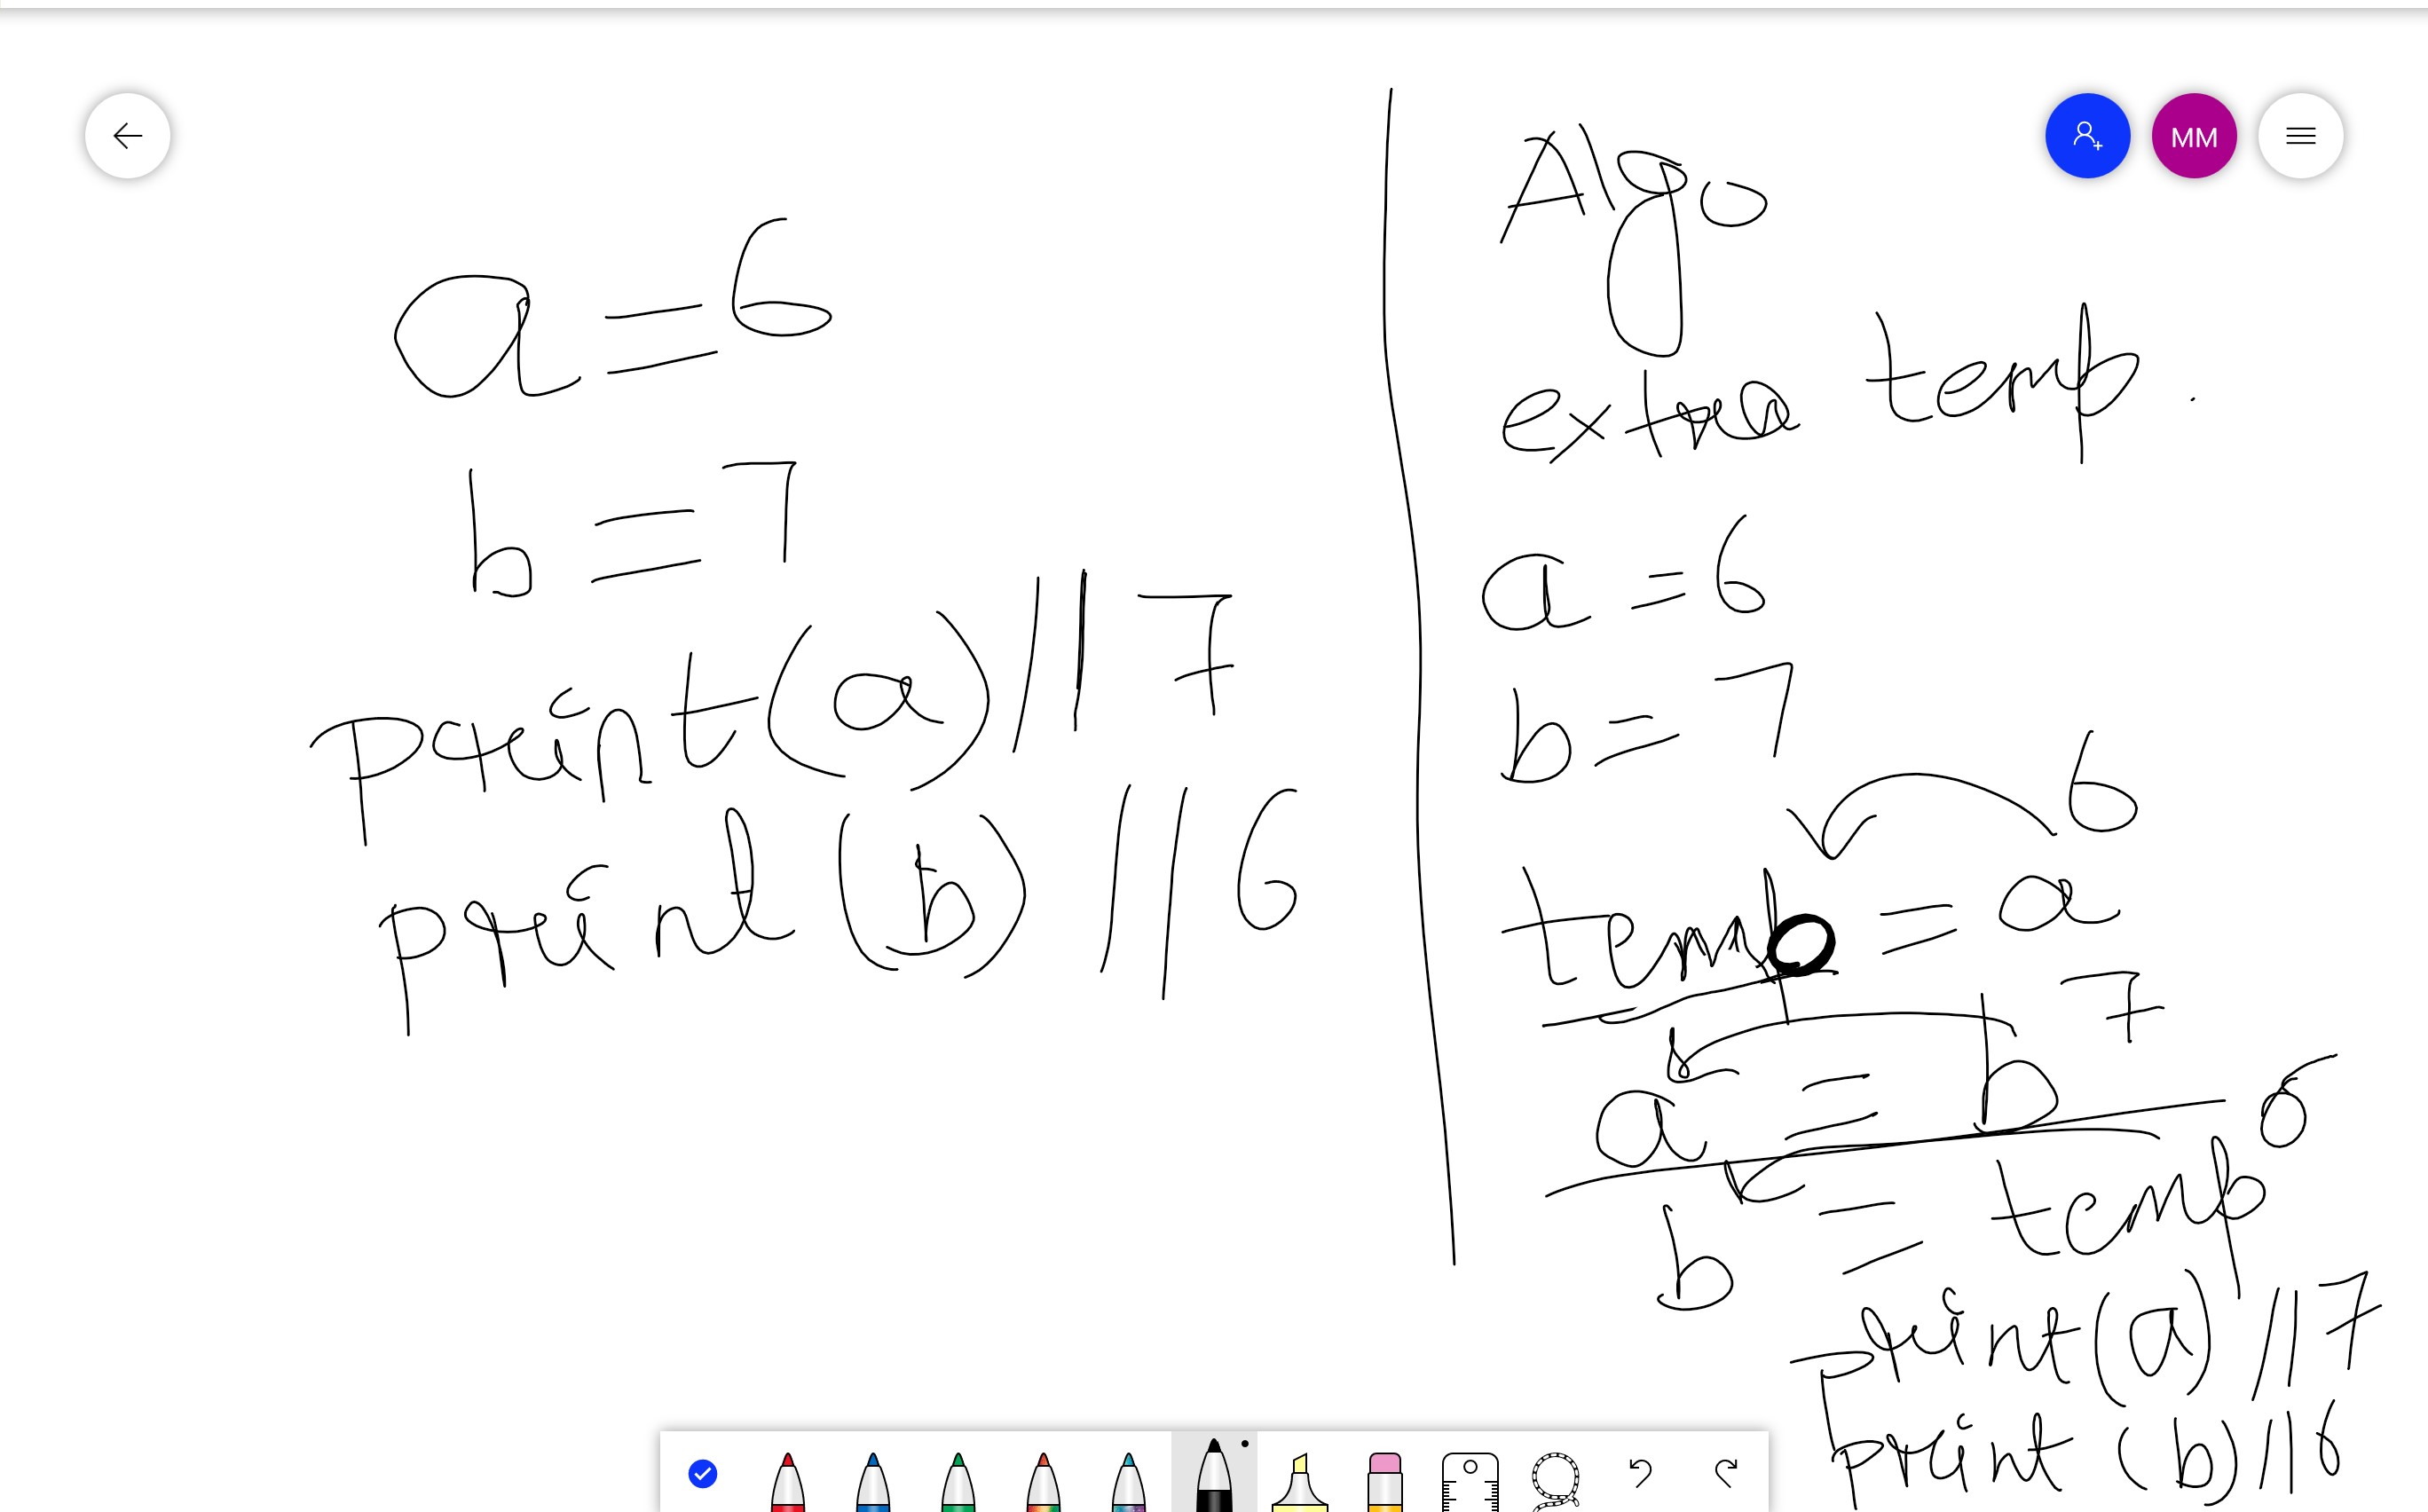 MM
a = 6
b = 7
print(a) // 7
print (b) // 6
Algo
extra temp.
a = 6
b = 7
6
temp = a
7
a = b
6
b = temp
print(a) // 7
print (b) // 6